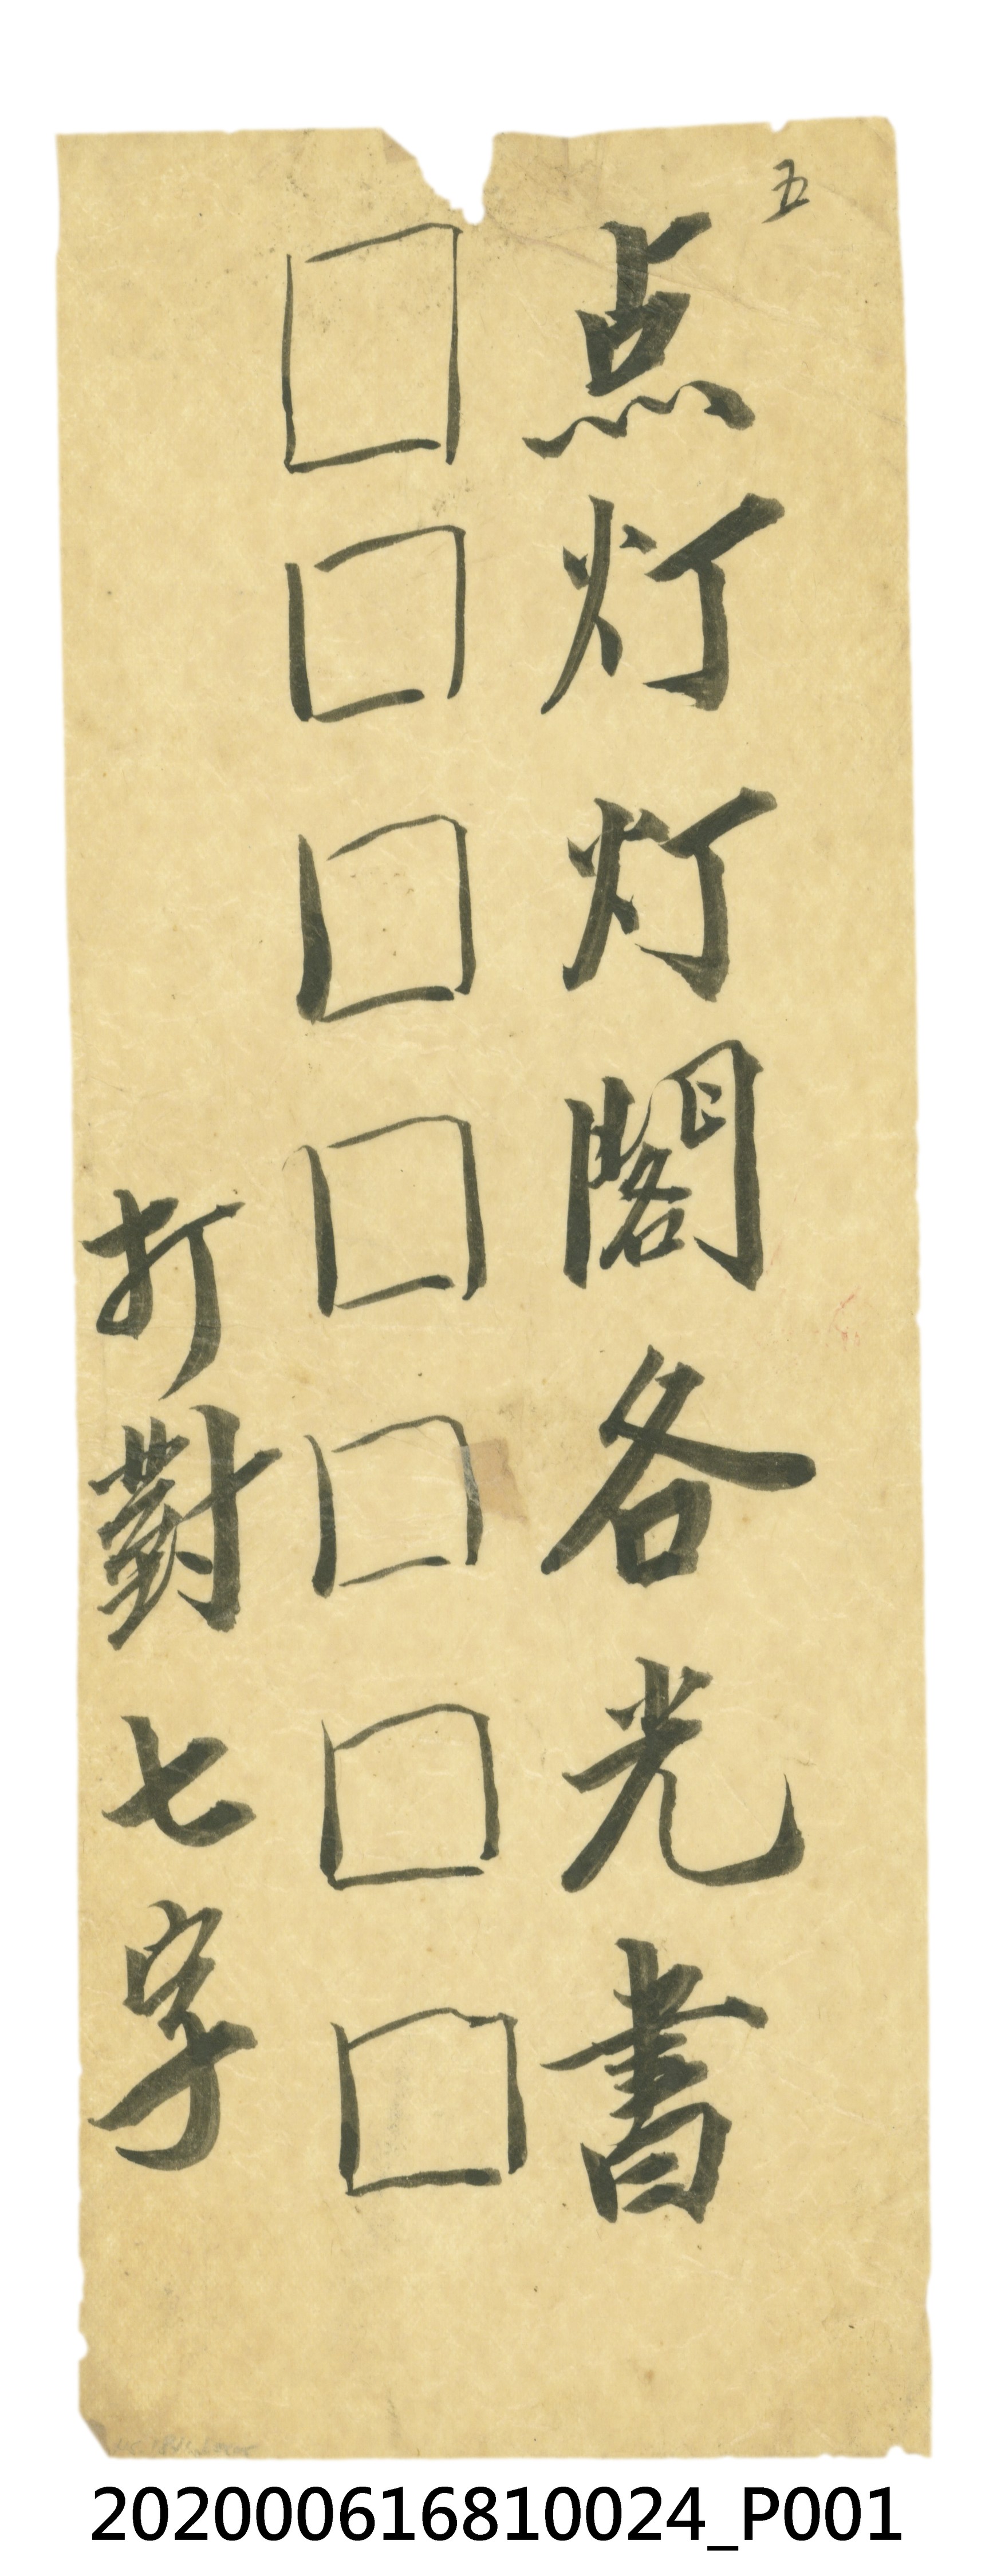 五
点灯灯閣各光書
□□□□□□□
打對七字
202000616810024_P001